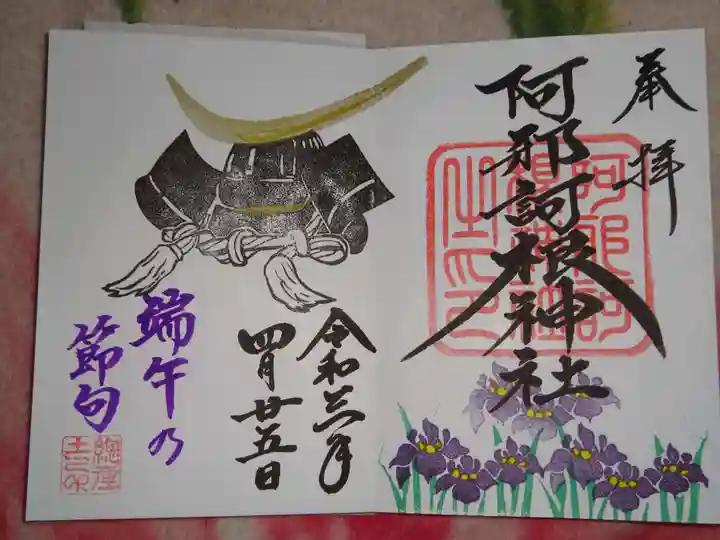 奉拝
阿邪訶根神社
阿邪訶根神社之印
令和三年
四月廿五日
端午乃
節句